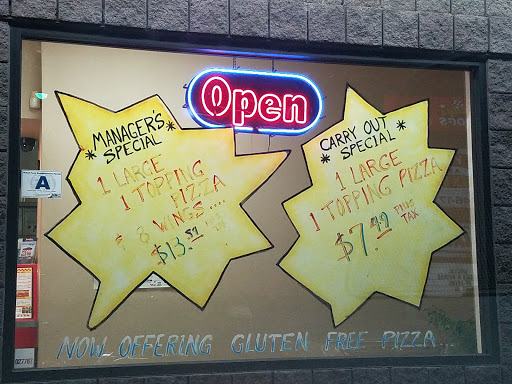 Open
MANAGER'S
* SPECIAL *
1 LARGE
1 TOPPING
PIZZA
& 8 WINGS....
$13.59
CARRY OUT
* SPECIAL *
1 LARGE
1 TOPPING PIZZA
$7.49 PLUS
TAX
A
NOW OFFERING GLUTEN FREE PIZZA...